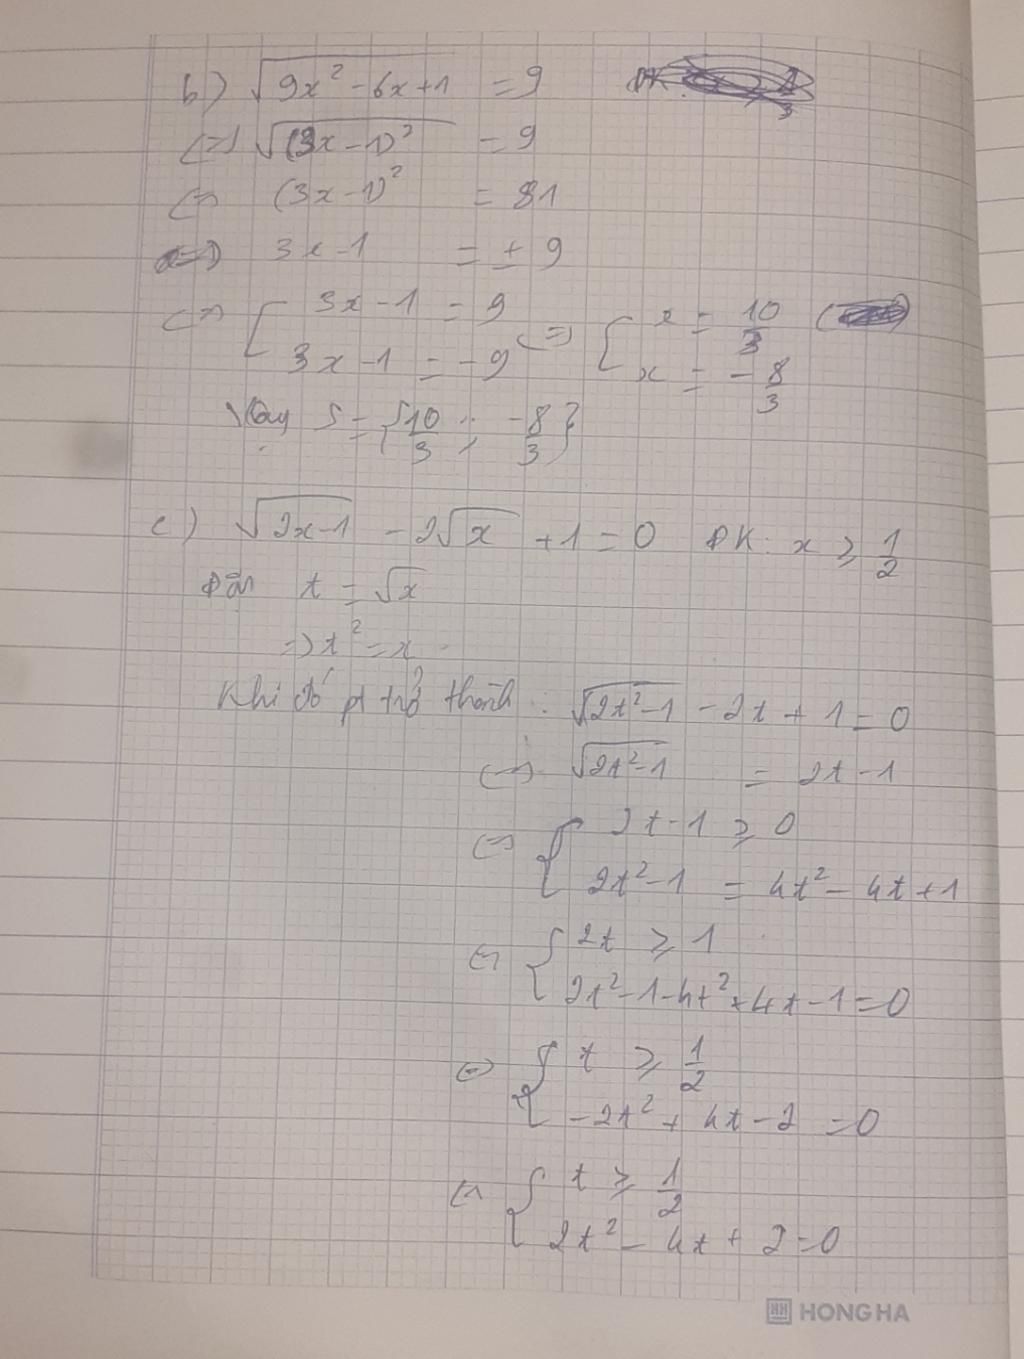 b) √(9x² - 6x + 1) = 9 ĐK:
<=> √((3x - 1)²) = 9
<=> (3x - 1)² = 81
<=> 3x - 1 = ± 9
<=> [ 3x - 1 = 9 <=> [ x = 10/3
3x - 1 = - 9 x = - 8/3
Vậy S = {10/3 ; -8/3}
c) √(2x - 1) - 2√x + 1 = 0 ĐK: x ≥ 1/2
Đặt t = √x
=> t² = x
Khi đó pt trở thành : √(2t² - 1) - 2t + 1 = 0
<=> √(2t² - 1) = 2t - 1
<=> { 2t - 1 ≥ 0
2t² - 1 = 4t² - 4t + 1
<=> { 2t ≥ 1
2t² - 1 - 4t² + 4t - 1 = 0
<=> { t ≥ 1/2
- 2t² + 4t - 2 = 0
<=> { t ≥ 1/2
2t² - 4t + 2 = 0
HONG HA